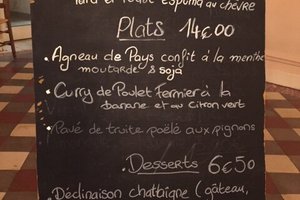 Tard et roulé espuma au chèvre
Plats 14€00
• Agneau de Pays confit à la menthe
moutarde & soja
• Curry de Poulet Fermier à la
banane et au citron vert
• Pavé de truite poêlé aux pignons
Desserts 6€50
• Déclinaison chataigne (gâteau,